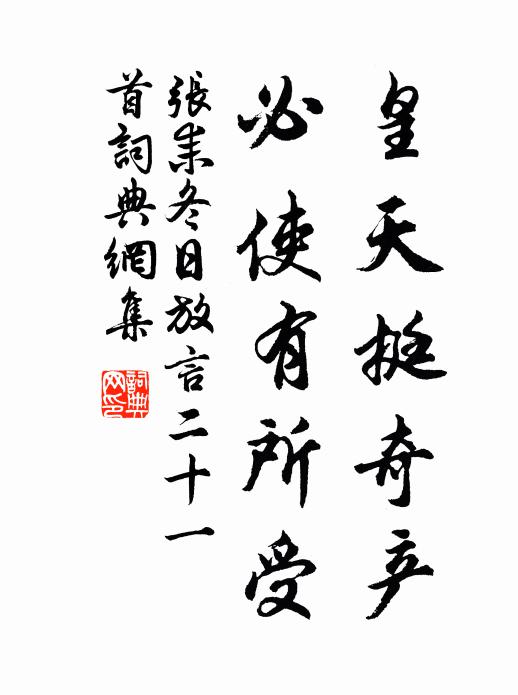 皇天挺奇产
必使有所受
張耒冬日放言二十一
首詞典網集
詞典网印